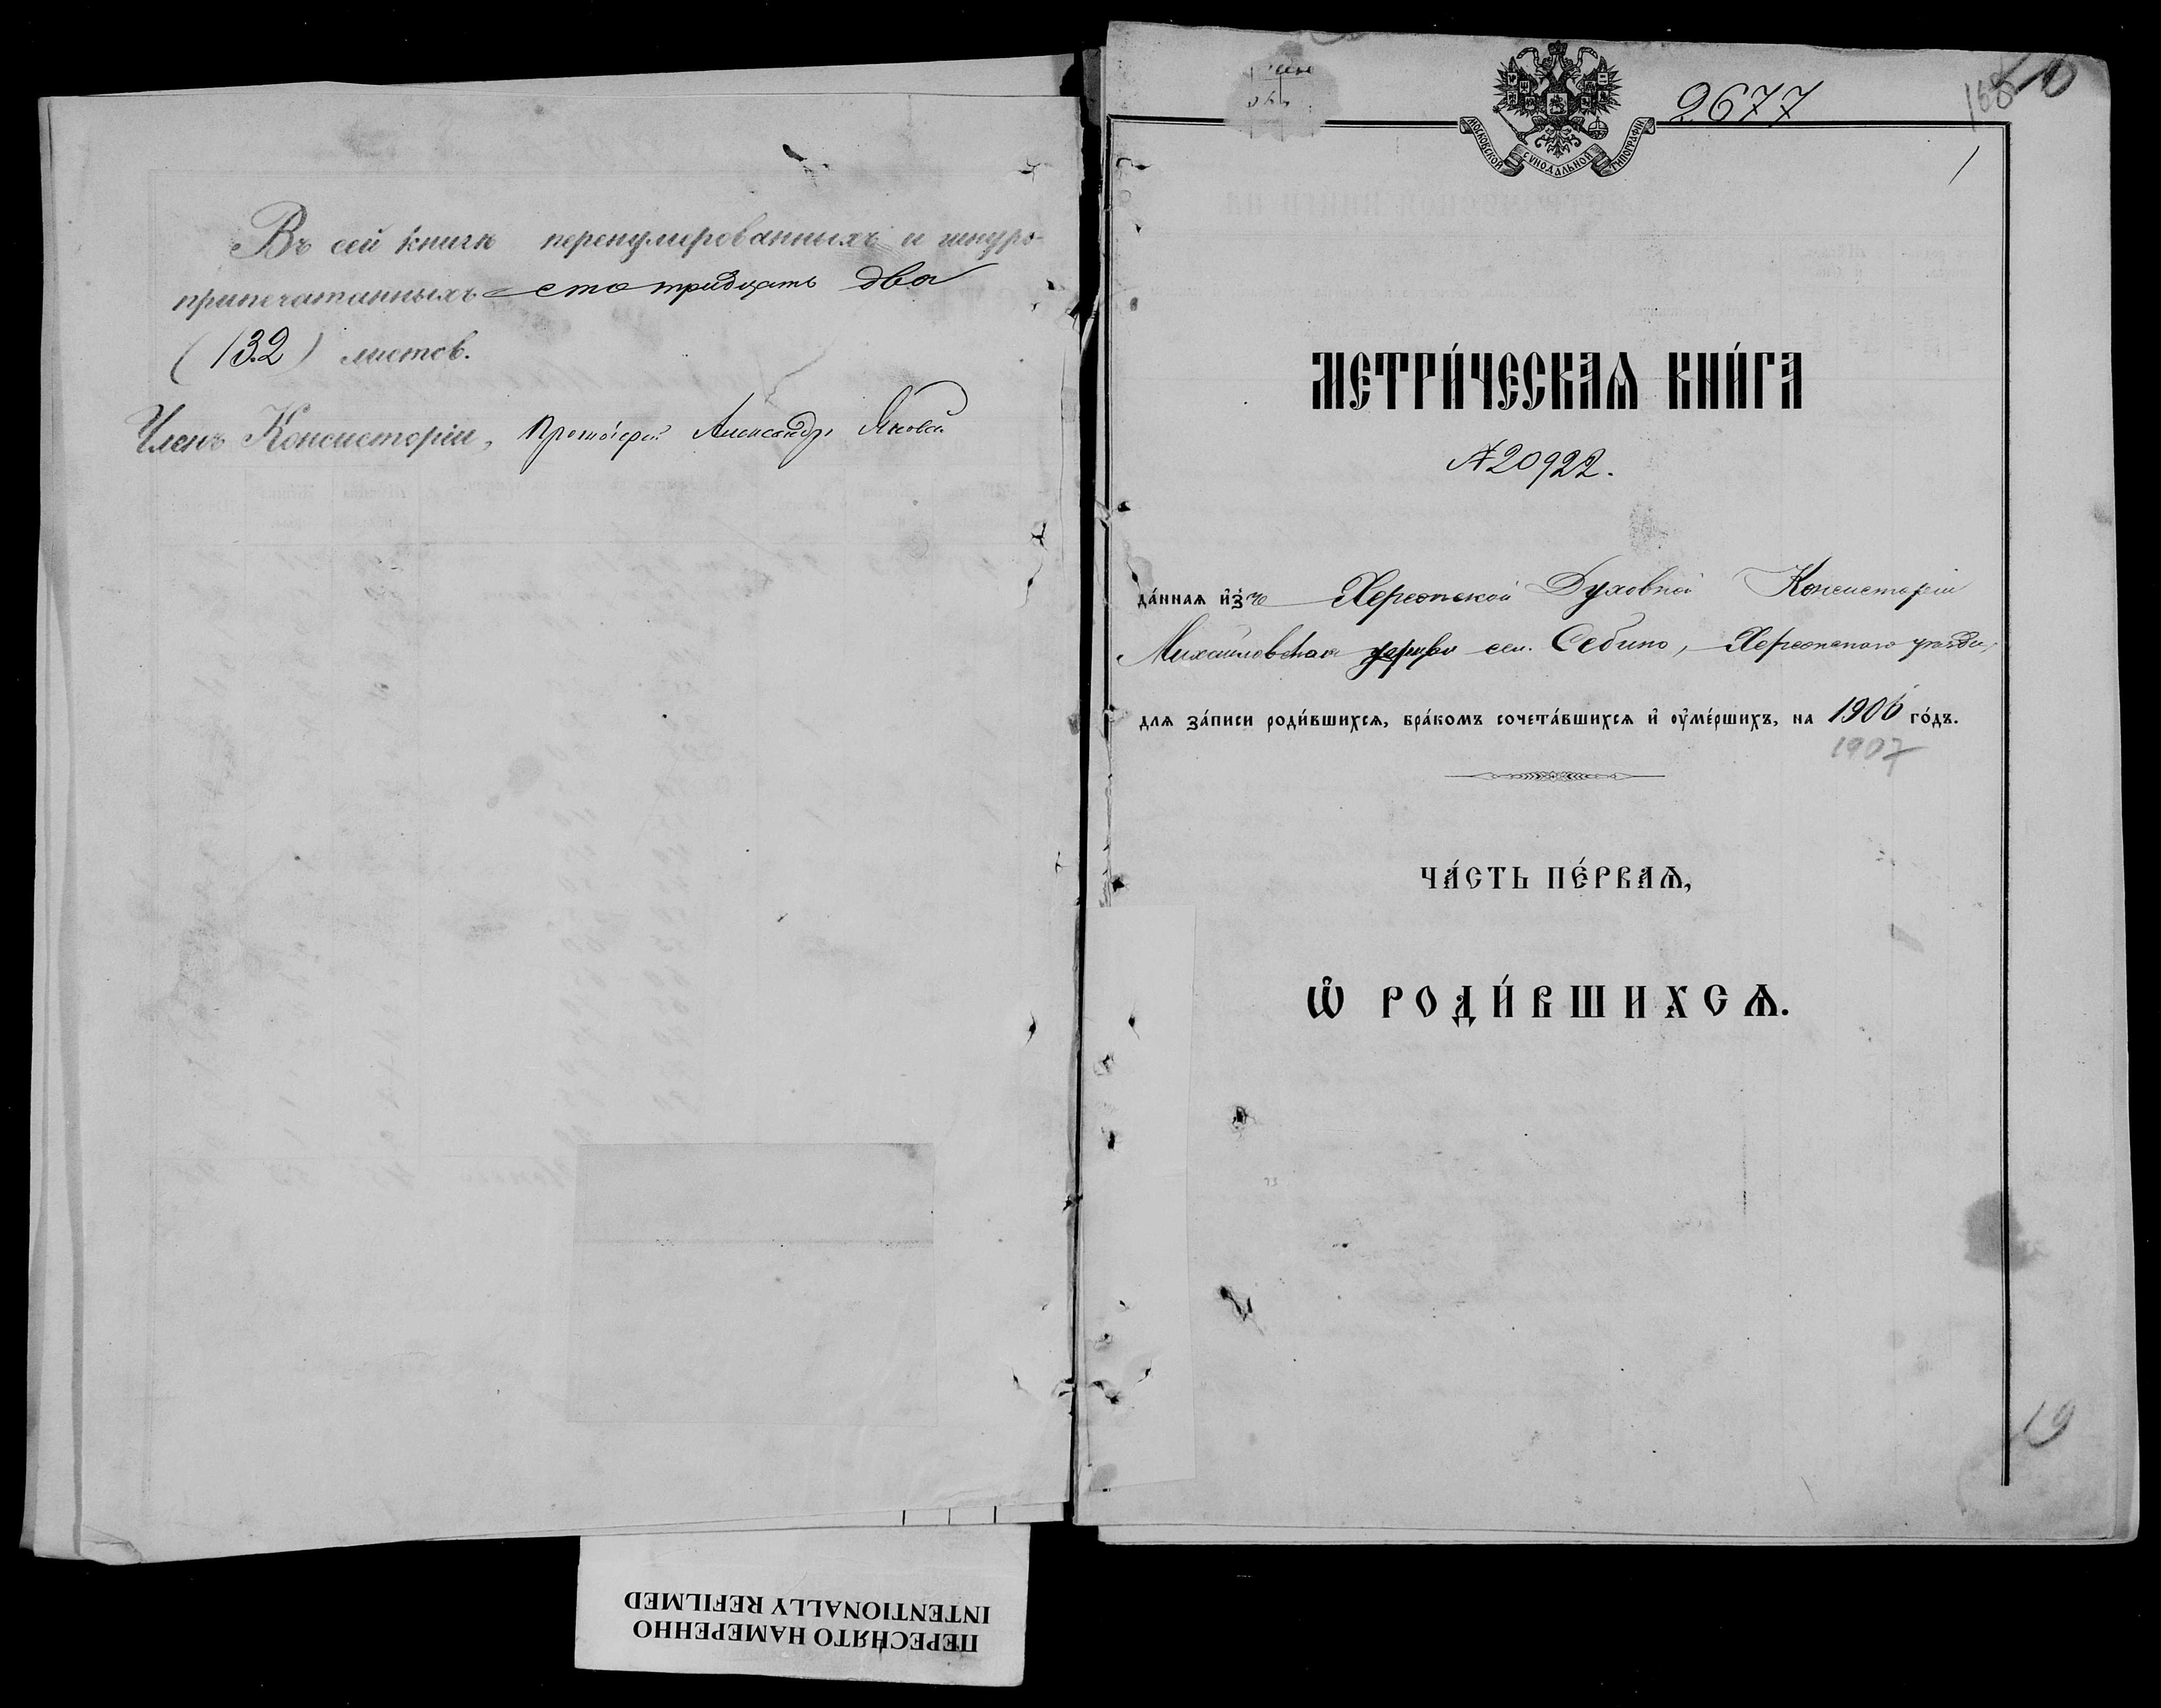 Въ сей книгѣ перенумерованныхъ и шнуро-
припечатанныхъ сто тридцать два
(132) листов.
Членъ Консисторіи, Протоіерей Александръ
2677
168
МОСКОВСКОЙ СѴНОДАЛЬНОЙ ТИПОГРАФІИ
1
МЕТРИ́ЧЕСКАѦ КНИ́ГА
№ 20922.
да́ннаѧ и҆з̾ Херсонской Духовной Консисторіи
Михайловская церкви сел. Себино, Херсонскаго уѣзда,
длѧ за́писи роди́вшихсѧ, бра́комъ сочета́вшихсѧ и҆ ᲂу҆ме́ршихъ, на 1906 го́дъ.
1907
ЧА́СТЬ ПЕ́РВАѦ,
Ѽ РОДИ́ВШИХСѦ.
19
ПЕРЕСНЯТО НАМЕРЕННО
INTENTIONALLY REFILMED